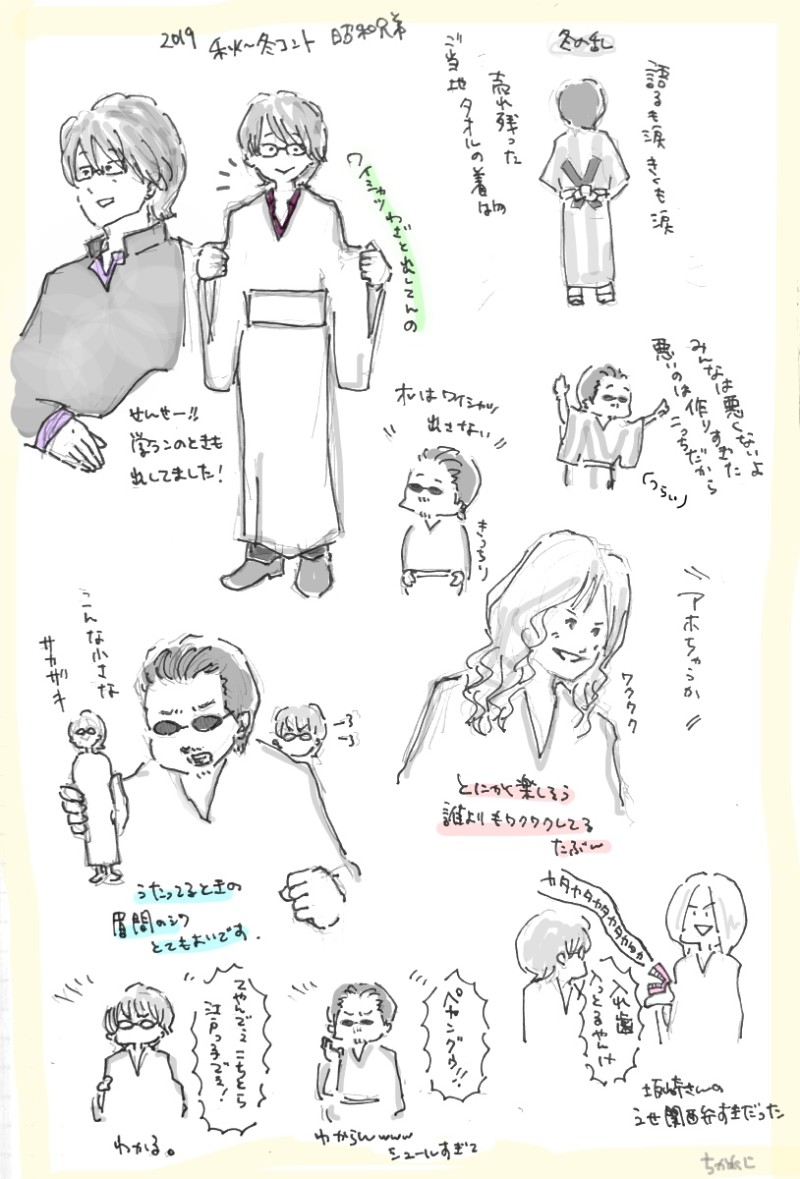 2019 秋〜冬コント 昭和兄弟
冬の乱
語るも涙 きくも涙
売れ残った
ご当地タオルの着物
ワイシャツわざと出してんの
せんせー!!
学ランのときも
出してました！
オレはワイシャツ
出さない
きっちり
みんなは悪くないよ
悪いのは作りすぎた
こっちだから
「つらい」
こんな小さな
サカザキ
うたってるときの
眉間のシワ
とてもよいです.
アホちゃうか
ワクワク
とにかく楽しそう
誰よりもワクワクしてる
たぶん
カタカタカタカタカタカタ
入れ歯
入っとるやんけ
坂崎さんの
エセ関西弁すきだった
てやんでぇ こちとら
江戸っ子でぇ！
わかる。
ペヤングゥ!!
わからんwww
シュールすぎて